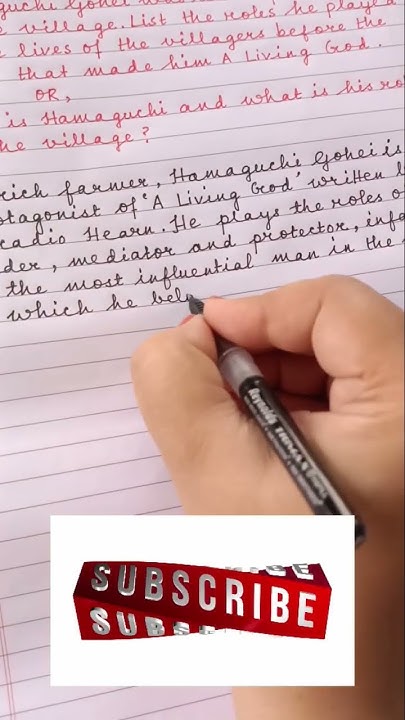 guchi Gohei
e village. List the roles he played
e lives of the villagers before the
that made him A Living God.
OR,
is Hamaguchi and what is his ro
he village?
rich farmer, Hamaguchi Gohei is
otagonist of 'A Living God' written
cadio Hearn. He plays the roles o
der, mediator and protector, info
the most influential man in the
which he belo
Reynolds TRIMAX
SUBSCRIBE